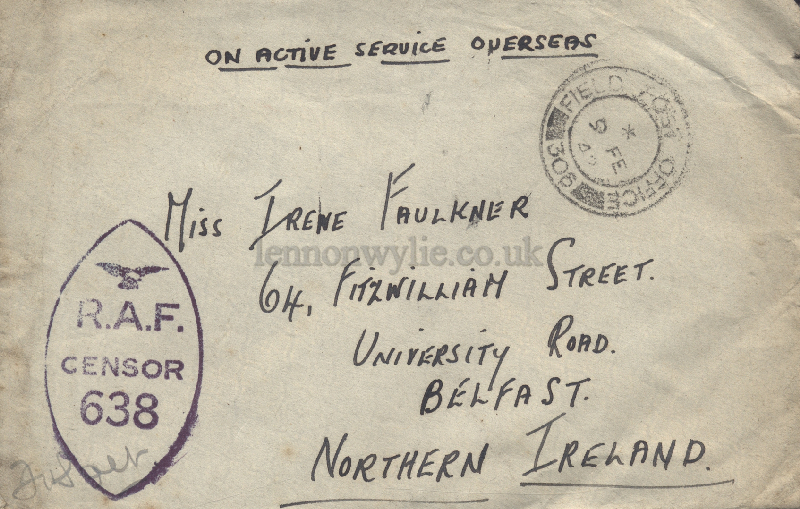 ON ACTIVE SERVICE OVERSEAS
FIELD POST OFFICE
903
* 
9 FE
MISS IRENE FAULKNER
lennonwylie.co.uk
64, FITZWILLIAM STREET.
UNIVERSITY ROAD.
BELFAST.
NORTHERN IRELAND.
R.A.F.
CENSOR
638